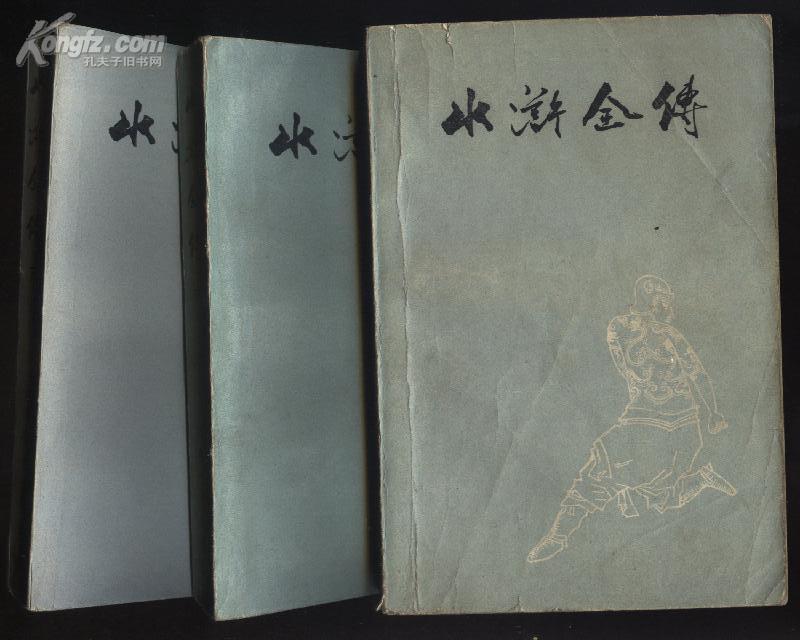 Kongfz.com
孔夫子旧书网
水
水
水滸全傳